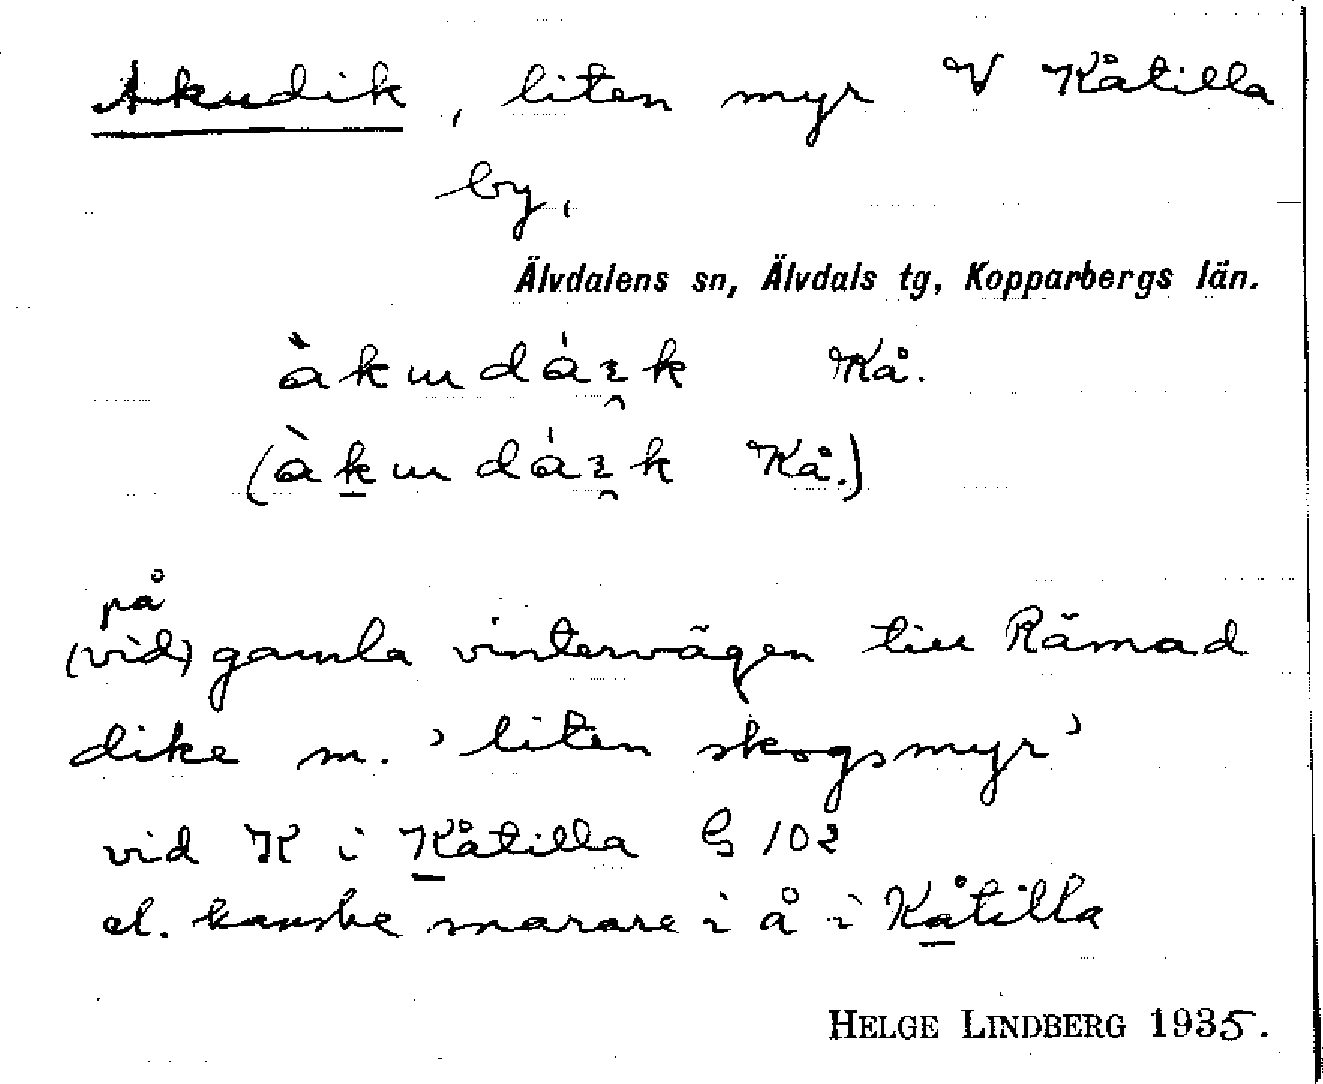 Akudik, liten myr V Kåtilla
by,
Älvdalens sn, Älvdals tg, Kopparbergs län.
Kå.
Kå.)
på
(vid) gamla vintervägen till Rämad
dike m. 'liten skogsmyr'
vid K i Kåtilla G 102
el. kanske snarare i å i Kåtilla
HELGE LINDBERG 1935.